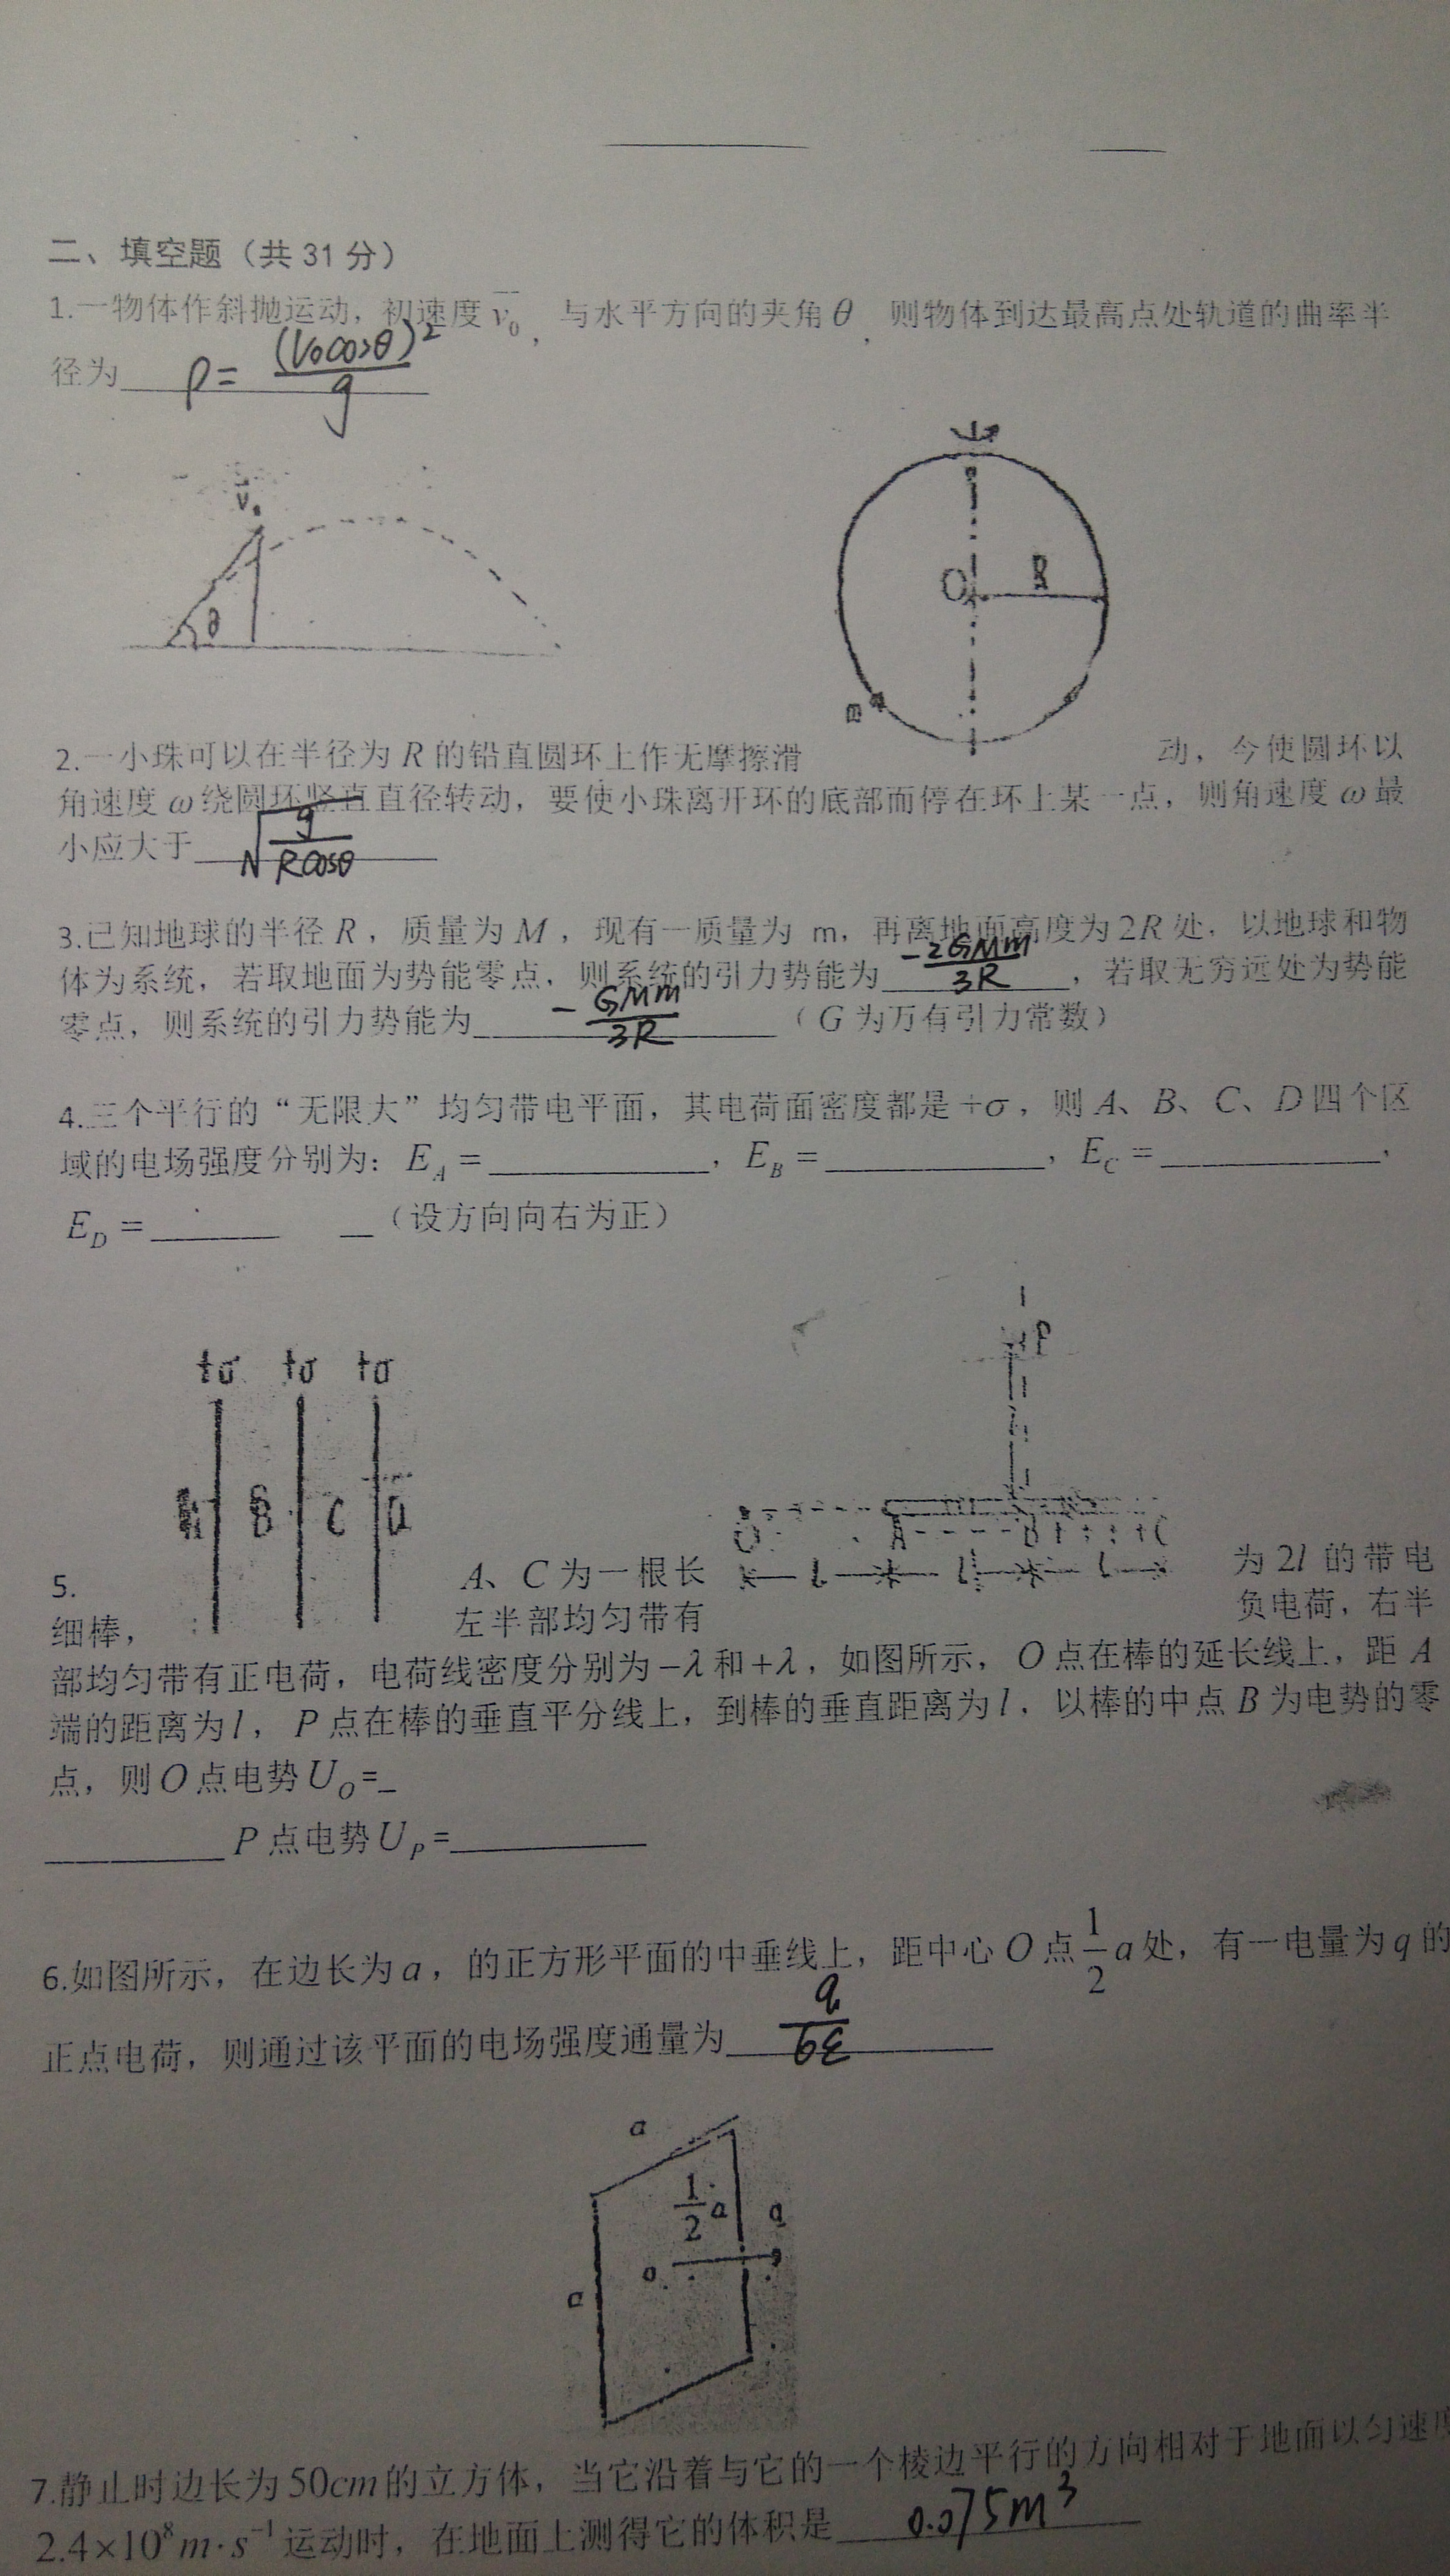 二、填空题（共 31 分）
1.一物体作斜抛运动，初速度 v₀，与水平方向的夹角 θ，则物体到达最高点处轨道的曲率半
径为 ρ= (v₀cosθ)²/g
v₀
θ
O R
m
2.一小珠可以在半径为 R 的铅直圆环上作无摩擦滑 动，今使圆环以
角速度 ω 绕圆环竖直直径转动，要使小珠离开环的底部而停在环上某一点，则角速度 ω 最
小应大于 √(g/Rcosθ)
3.已知地球的半径 R，质量为 M，现有一质量为 m，再离地面高度为 2R 处，以地球和物
体为系统，若取地面为势能零点，则系统的引力势能为 -2GMm/3R ，若取无穷远处为势能
零点，则系统的引力势能为 -GMm/3R （G 为万有引力常数）
4.三个平行的“无限大”均匀带电平面，其电荷面密度都是 +σ，则 A、B、C、D 四个区
域的电场强度分别为：E_A =________，E_B =________，E_C =________，
E_D =________（设方向向右为正）
+σ +σ +σ
A B C D
P
O A B C
l l l
5. A、C 为一根长 为 2l 的带电
细棒， 左半部均匀带有 负电荷，右半
部均匀带有正电荷，电荷线密度分别为 -λ 和 +λ，如图所示，O 点在棒的延长线上，距 A
端的距离为 l，P 点在棒的垂直平分线上，到棒的垂直距离为 l，以棒的中点 B 为电势的零
点，则 O 点电势 U_O=_
________ P 点电势 U_P=________
6.如图所示，在边长为 a，的正方形平面的中垂线上，距中心 O 点 1/2 a 处，有一电量为 q 的
正点电荷，则通过该平面的电场强度通量为 q/6ε
a
1/2 a q
o
a
7.静止时边长为 50cm 的立方体，当它沿着与它的一个棱边平行的方向相对于地面以匀速度
2.4×10⁸m·s⁻¹ 运动时，在地面上测得它的体积是 0.075m³